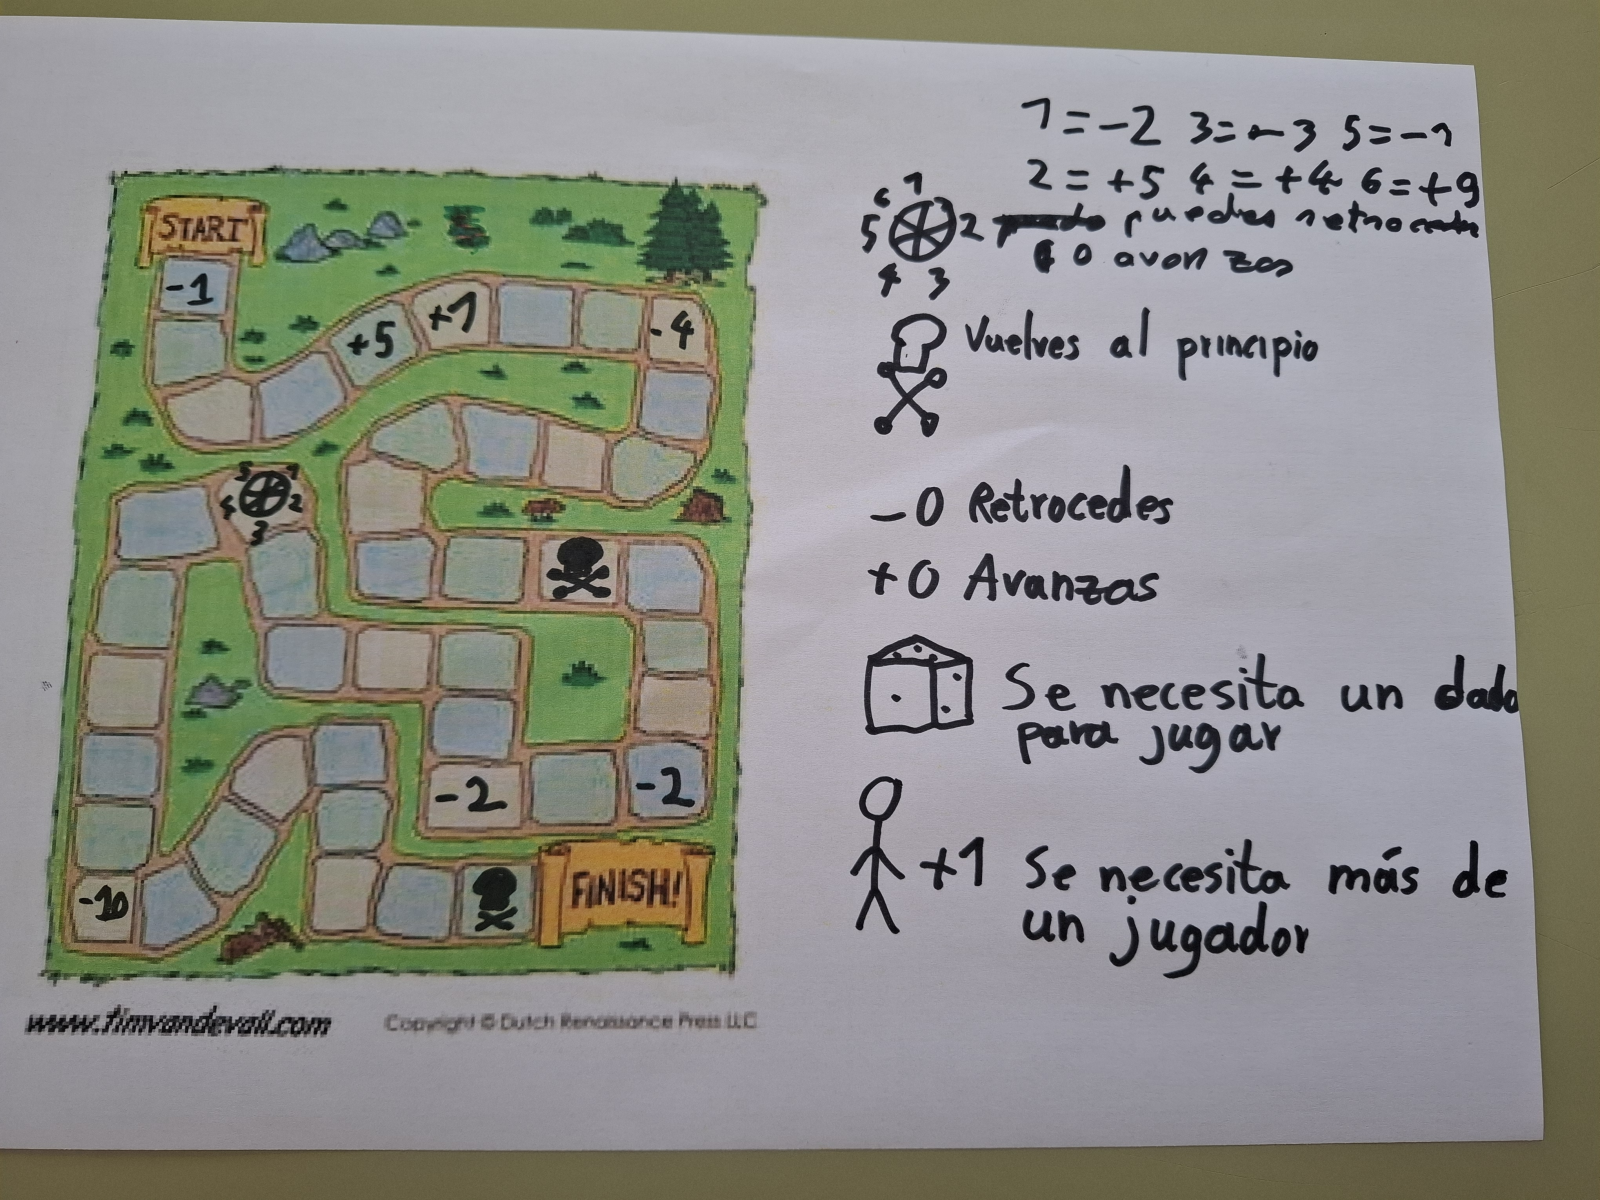 1 = -2 3 = -3 5 = -1
2 = +5 4 = +4 6 = +9
6 1
5 2 puedes
4 3 o avanzas
START
-1
+5 +1 -4
Vuelves al principio
-0 Retrocedes
+0 Avanzas
Se necesita un dado
para jugar
-2 -2
+1 Se necesita más de
un jugador
-10
FINISH!
www.timvandevall.com
Copyright © Dutch Renaissance Press LLC